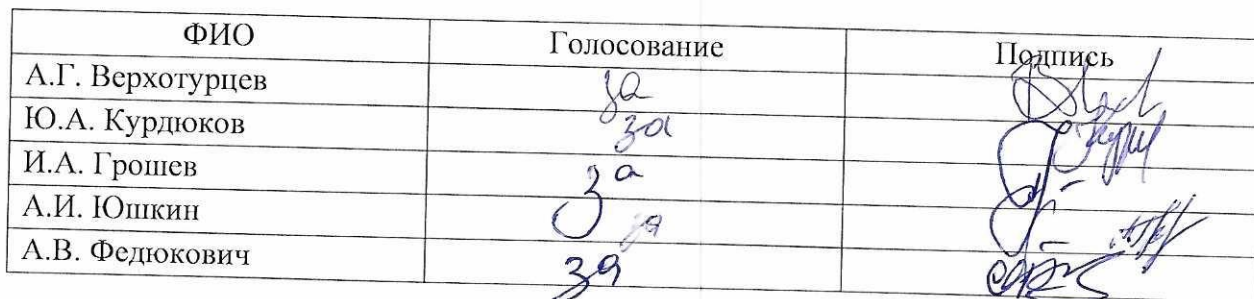 ФИО Голосование Подпись
А.Г. Верхотурцев за
Ю.А. Курдюков за
И.А. Грошев за
А.И. Юшкин за
А.В. Федюкович за